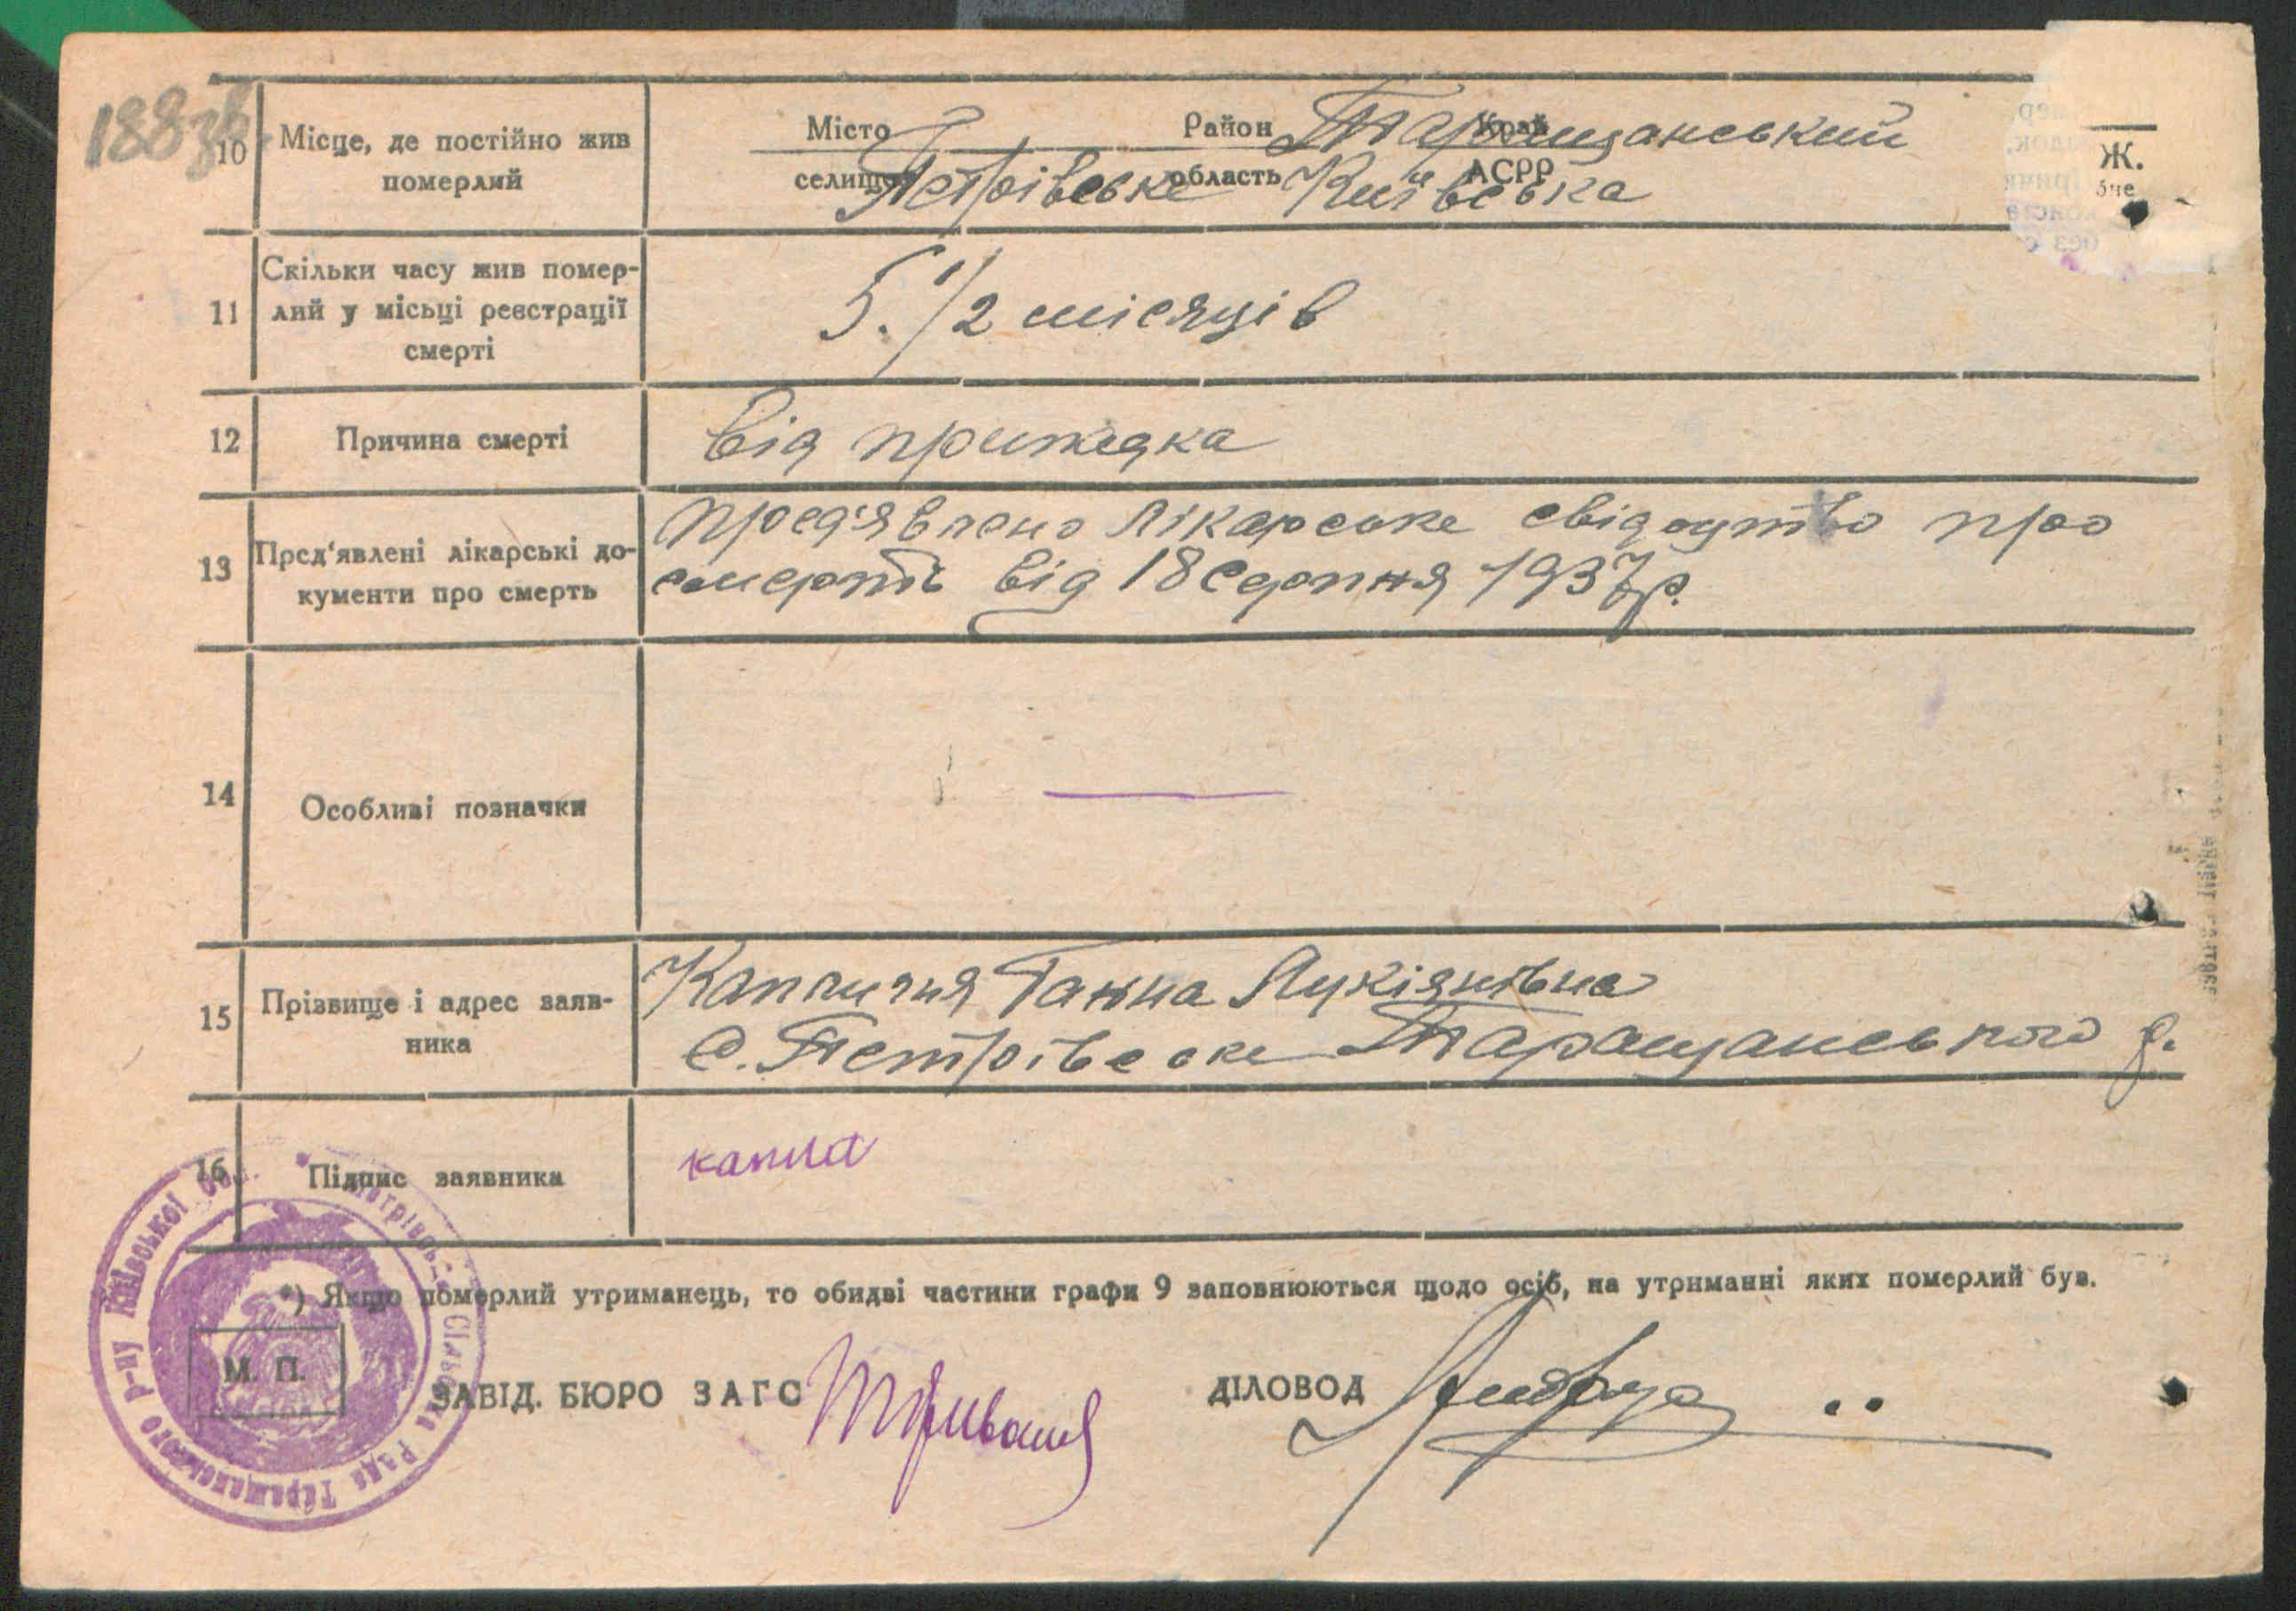 188зв.
10 Місце, де постійно жив померлий
Місто Район Тарощанський Край
селище Петрівське область Київська АСРР
Ж.
11 Скільки часу жив помер-
лий у місьці реєстрації
смерті
5. 1/2 місяців
12 Причина смерті
Від припадка
13 Пред'явлені лікарські до-
кументи про смерть
Пред'явлено Лікарське свідоцтво про
смерть від 18 Серпня 1937р.
14 Особливі позначки
15 Прізвище і адрес заяв-
ника
Ганна Лукіянівна
с. Петрівське Таращанського р.
16 Підпис заявника
*) Якщо померлий утриманець, то обидві частини графи 9 заповнюються щодо осіб, на утриманні яких померлий був.
М. П.
ЗАВІД. БЮРО ЗАГС
ДІЛОВОД
Сільська Рада Таращанського р-ну Київської Обл.